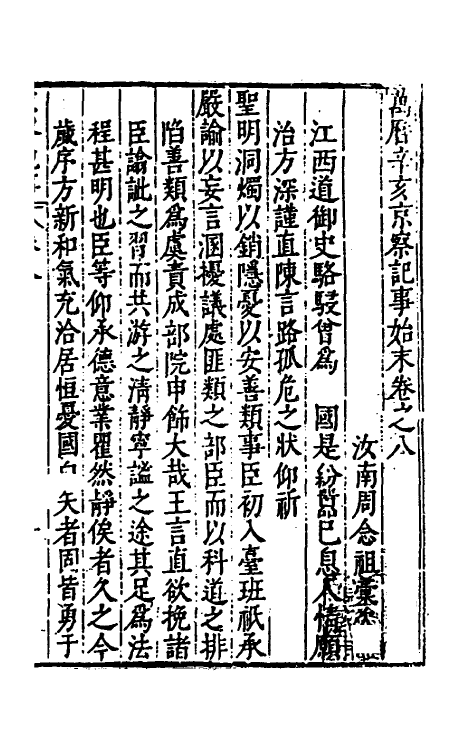 萬曆辛亥京察記事始末卷之八
汝南周念祖彙次
江西道御史駱駸曾爲　國是紛囂已息人情願
治方深謹直陳言路孤危之狀仰祈
聖明洞燭以銷隱憂以安善類事臣初入臺班祇承
嚴諭以妄言溷擾議處匪類之部臣而以科道之排
陷善類爲虞責成部院申飾大哉王言直欲挽諸
臣諭訿之習而共游之淸靜寧謐之途其足爲法
程甚明也臣等仰承德意業瞿然靜俟者久之今
歲序方新和氣充洽居恒憂國自　矢者固皆勇于